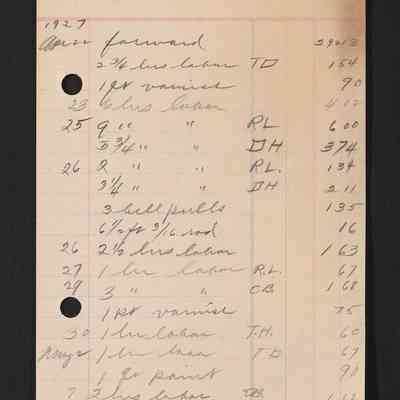 1927
forward
2 3/4 hrs labor TD 154
1 qt varnish 90
23 hrs labor 412
25 9 " " RL 600
5 3/4 " " DH 374
26 2 " " RL. 134
3 1/4 " " DH 211
3 bell pulls 135
6 1/2 ft 3/16 rod 16
26 2 1/2 hrs labor 163
27 1 hr labor R.L. 67
29 3 " " C.B. 168
1 pt varnish 75
30 1 hr labor T.H. 60
1 hr labor TD 67
1 qt paint 90
7 2 hrs labor